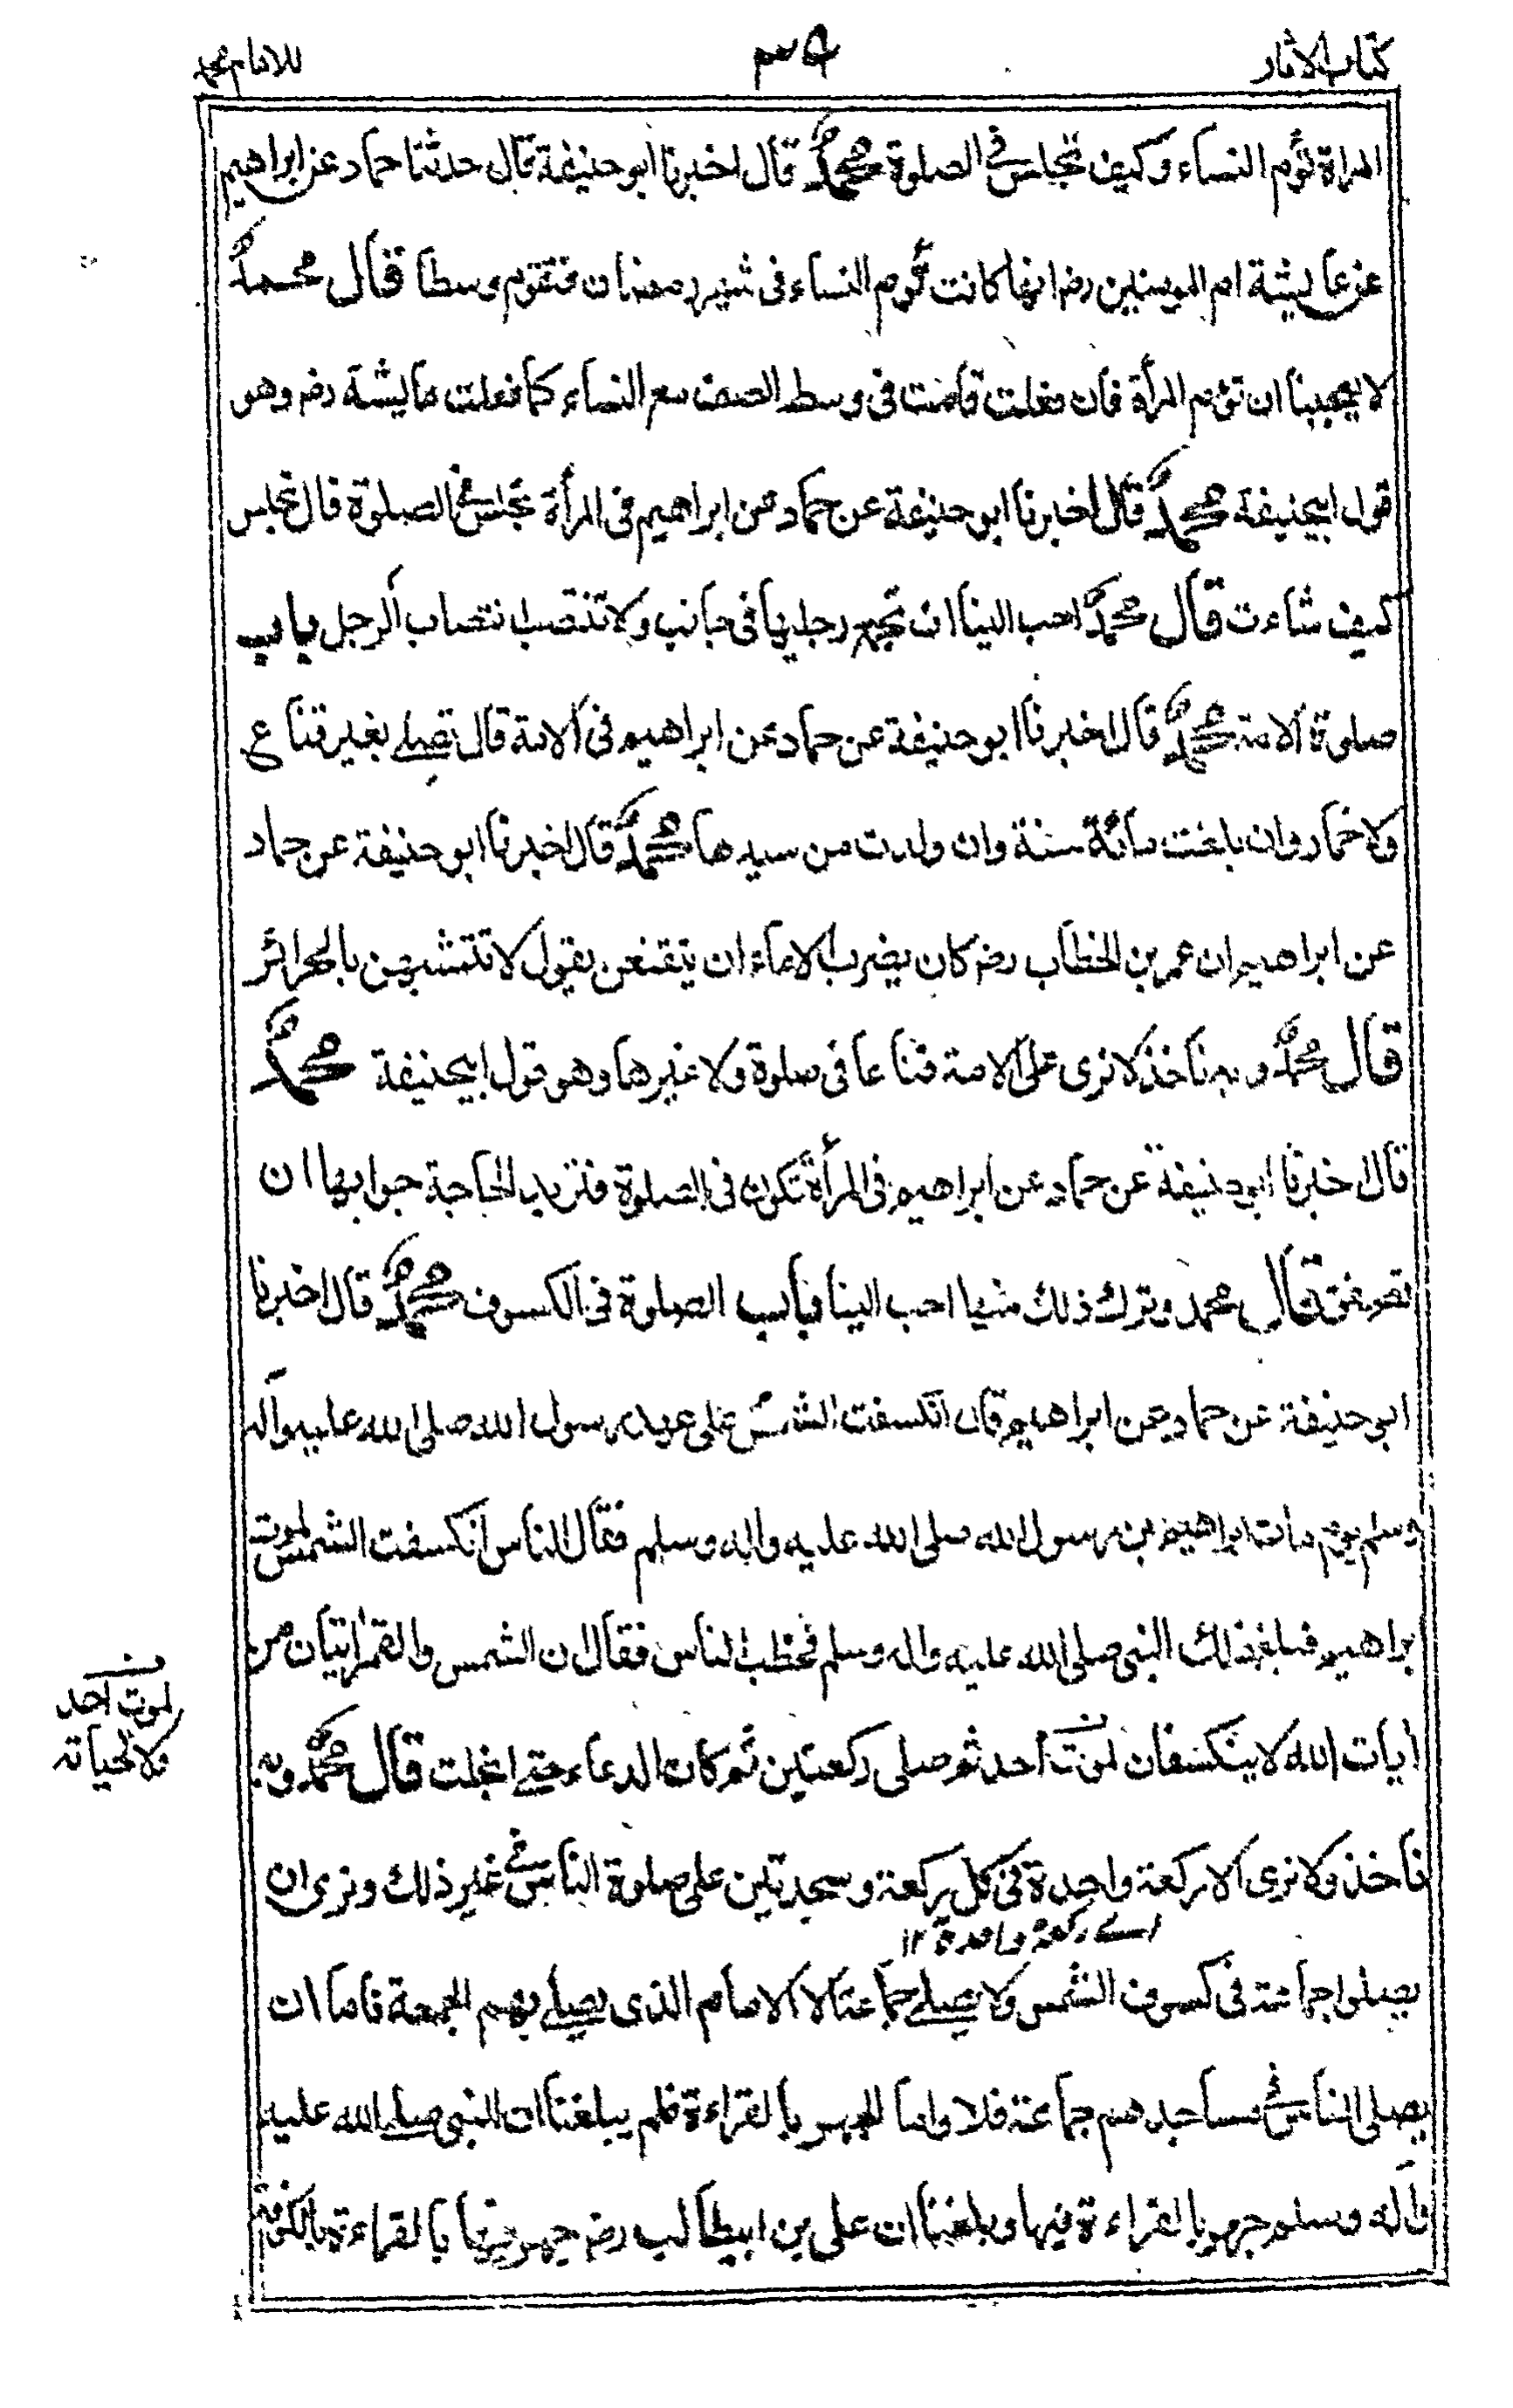 كتاب الآثار
٣٩
للامام محمد
المرأة تؤم النساء وكيف تجلس في الصلوة محمدٌ قال اخبرنا ابو حنيفة قال حدثنا حماد عن ابراهيم
عن عايشة ام المومنين رضـ انها كانت تؤم النساء فى شهر رمضان فتقوم وسطا قال محمدٌ
لا يعجبنا ان تؤم المرأة فان فعلت قامت فى وسط الصف مع النساء كما فعلت عايشة رضـ وهو
قول ابيحنيفة محمدٌ قال اخبرنا ابو حنيفة عن حماد عن ابراهيم فى المرأة تجلس فى الصلوة قال تجلس
كيف شاءت قال محمدٌ احب الينا ان تجمع رجليها فى جانب ولا تنتصب انتصاب الرجل باب
صلوة الامة محمدٌ قال اخبرنا ابو حنيفة عن حماد عن ابراهيم فى الامة قال تصلے بغير قناع
ولا خمار وان بلغت مائة سنة وان ولدت من سيدها محمدٌ قال اخبرنا ابو حنيفة عن حماد
عن ابراهيم ان عمر بن الخطاب رضـ كان يضرب الاماء ان يتقنعن يقول لا تتشبهن بالحرائر
قال محمدٌ وبه ناخذ لا نرى على الامة قناعا فى صلوة ولا غيرها وهو قول ابيحنيفة محمدٌ
قال اخبرنا ابو حنيفة عن حماد عن ابراهيم فى المرأة تكون فى الصلوة فتريد الحاجة جوابها ان
تصفق قال محمد وترك ذلك منها احب الينا باب الصلوة فى الكسوف محمدٌ قال اخبرنا
ابو حنيفة عن حماد عن ابراهيم قال انكسفت الشمس على عهد رسول الله صلى الله عليه وآله
وسلم يوم مات ابراهيم بن رسول الله صلى الله عليه واله وسلم فقال الناس انكسفت الشمس لموت
ابراهيم فبلغ ذلك النبى صلى الله عليه واله وسلم فخطب الناس فقال ان الشمس والقمر ايتان من
ايات الله لا ينكسفان لموت احد ثم صلى ركعتين ثم كان الدعاء حتے انجلت قال محمدٌ وبه
ناخذ ولا نرى الا ركعة واحدة فى كل ركعة وسجدتين على صلوة الناس في غير ذلك ونرى ان
اے ركعة واحدة ١٢
يصلوا جماعة فى كسوف الشمس ولا يصلے جماعة الا الامام الذى يصلے بهم الجمعة فاما ان
يصلى الناس في مساجدهم جماعة فلا واما الجهر بالقراءة فلم يبلغنا ان النبى صلے الله عليه
وآله وسلم جهر بالقراءة فيها وبلغنا ان على بن ابيطالب رضـ جهر فيها بالقراءة بالكوفة
لموت احد
ولا لحياته